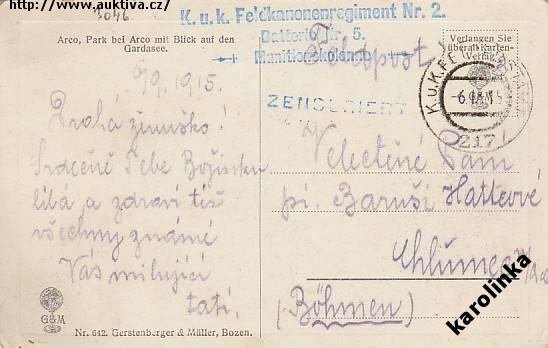 http://www.auktiva.cz/
1046
K. u. k. Feldkanonenregiment Nr. 2.
Batterie Nr. 5.
Munitionskolonne
Arco, Park bei Arco mit Blick auf den
Gardasee.
Feldpost
Verlangen Sie
überall Karten-
Verlag
ZENSURIERT
K.u.K.
217
6/9 1915.
Drahá ženuško!
Srdečně Tebe Boženku
líbá a zdraví též
všechny známé
Váš milující
tatí.
Velectěné Paní
pí. Baruši Hatlevé
Chlumec
(Böhmen)
G&M
Nr. 642. Gerstenberger & Müller, Bozen.
karolinka